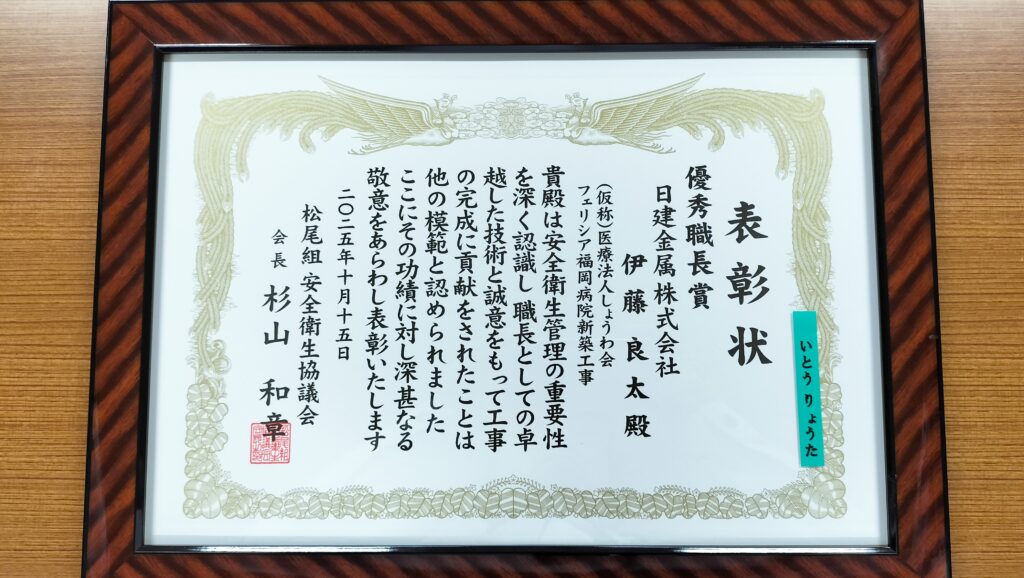 表彰状
優秀職長賞
日建金属株式会社
伊藤良太殿
(仮称)医療法人しょうわ会
フェリシア福岡病院新築工事
貴殿は安全衛生管理の重要性
を深く認識し 職長としての卓
越した技術と誠意をもって工事
の完成に貢献をされたことは
他の模範と認められました
ここにその功績に対し深甚なる
敬意をあらわし表彰いたします
二〇二五年十月十五日
松尾組 安全衛生協議会
会長 杉山 和章
いとう りょうた